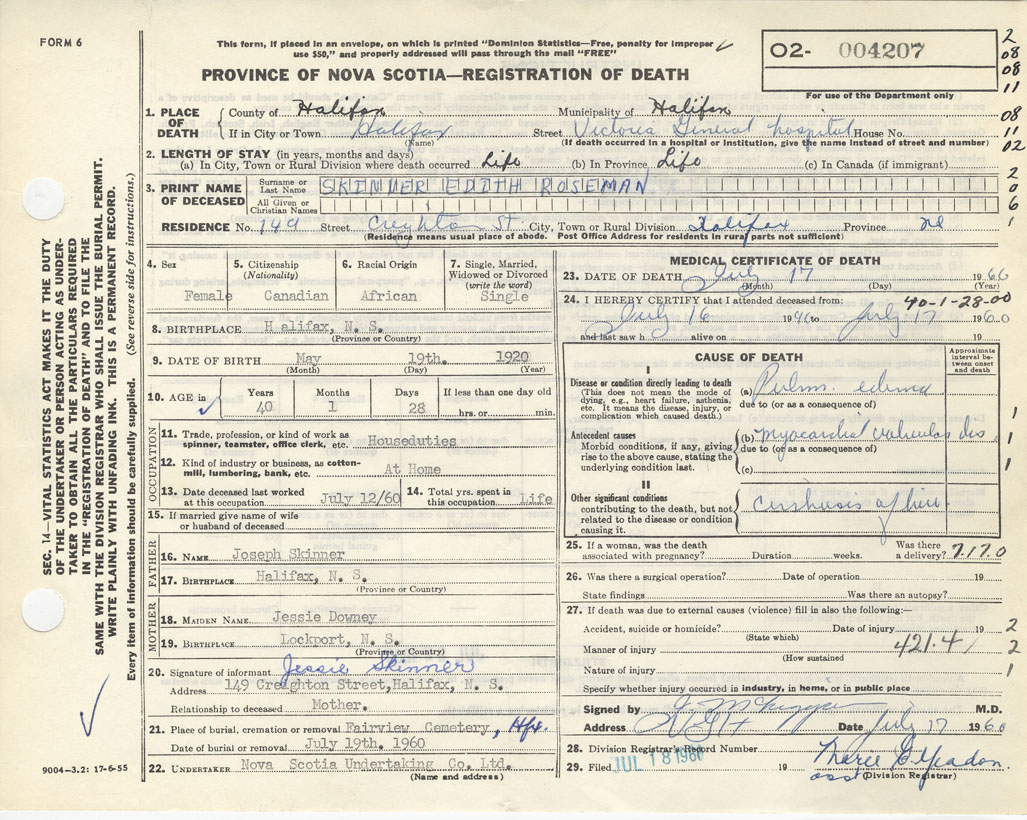 FORM 6
This form, if placed in an envelope, on which is printed "Dominion Statistics—Free, penalty for improper
use $50," and properly addressed will pass through the mail "FREE"
PROVINCE OF NOVA SCOTIA—REGISTRATION OF DEATH
O2- 004207
For use of the Department only
2
08
08
11
08
11
02
2
0
6
1
1. PLACE OF DEATH
County of Halifax Municipality of Halifax
If in City or Town Halifax Street Victoria General hospital House No.
(Name) (If death occurred in a hospital or institution, give the name instead of street and number)
2. LENGTH OF STAY (in years, months and days)
(a) In City, Town or Rural Division where death occurred Life (b) In Province Life (c) In Canada (if immigrant)
3. PRINT NAME OF DECEASED
Surname or Last Name SKINNER EDITH ROSEMAN
All Given or Christian Names
RESIDENCE No. 149 Street Creighton St City, Town or Rural Division Halifax Province NS
(Residence means usual place of abode. Post Office Address for residents in rural parts not sufficient)
4. Sex
Female
5. Citizenship
(Nationality)
Canadian
6. Racial Origin
African
7. Single, Married,
Widowed or Divorced
(write the word)
Single
8. BIRTHPLACE Halifax, N. S.
(Province or Country)
9. DATE OF BIRTH May 19th. 1920
(Month) (Day) (Year)
10. AGE in Years Months Days If less than one day
40 1 28 hrs. or min.
OCCUPATION
11. Trade, profession, or kind of work as
spinner, teamster, office clerk, etc. Houseduties
12. Kind of industry or business, as cotton-
mill, lumbering, bank, etc. At Home
13. Date deceased last worked
at this occupation July 12/60
14. Total yrs. spent in
this occupation Life
15. If married give name of wife
or husband of deceased
FATHER
16. NAME Joseph Skinner
17. BIRTHPLACE Halifax, N. S.
(Province or Country)
MOTHER
18. MAIDEN NAME Jessie Downey
19. BIRTHPLACE Lockport, N. S.
(Province or Country)
20. Signature of informant Jessie Skinner
Address 149 Creighton Street, Halifax, N. S.
Relationship to deceased Mother.
21. Place of burial, cremation or removal Fairview Cemetery, Hfx.
Date of burial or removal July 19th. 1960
22. UNDERTAKER Nova Scotia Undertaking Co. Ltd.
(Name and address)
MEDICAL CERTIFICATE OF DEATH
23. DATE OF DEATH July 17 1960
(Month) (Day) (Year)
24. I HEREBY CERTIFY that I attended deceased from: 40-1-28-00
July 16 1960 to July 17 1960
and last saw h alive on 19
CAUSE OF DEATH
Approximate interval between onset and death
I
Disease or condition directly leading to death
(This does not mean the mode of
dying, e.g., heart failure, asthenia,
etc. It means the disease, injury, or
complication which caused death.)
(a) Pulm. edema
due to (or as a consequence of)
1
Antecedent causes
Morbid conditions, if any, giving
rise to the above cause, stating the
underlying condition last.
(b) myocardial valvular dis
due to (or as a consequence of)
1
(c)
1
II
Other significant conditions
contributing to the death, but not
related to the disease or condition
causing it.
cirrhosis of liver
25. If a woman, was the death
associated with pregnancy? Duration weeks. Was there
a delivery? 717.0
26. Was there a surgical operation? Date of operation 19
State findings Was there an autopsy?
27. If death was due to external causes (violence) fill in also the following:—
Accident, suicide or homicide? Date of injury 19 2
(State which)
Manner of injury 421.4 2
(How sustained
Nature of injury 1
Specify whether injury occurred in industry, in home, or in public place
Signed by M.D.
Address VGH Date July 17 1960
28. Division Registrar's Record Number
29. Filed JUL 18 1960 19
asst (Division Registrar)
SEC. 14—VITAL STATISTICS ACT MAKES IT THE DUTY
OF THE UNDERTAKER OR PERSON ACTING AS UNDER-
TAKER TO OBTAIN ALL THE PARTICULARS REQUIRED
IN THE "REGISTRATION OF DEATH" AND TO FILE THE
SAME WITH THE DIVISION REGISTRAR WHO SHALL ISSUE THE BURIAL PERMIT.
WRITE PLAINLY WITH UNFADING INK. THIS IS A PERMANENT RECORD.
Every item of information should be carefully supplied. (See reverse side for instructions.)
9004-3.2: 17-6-55